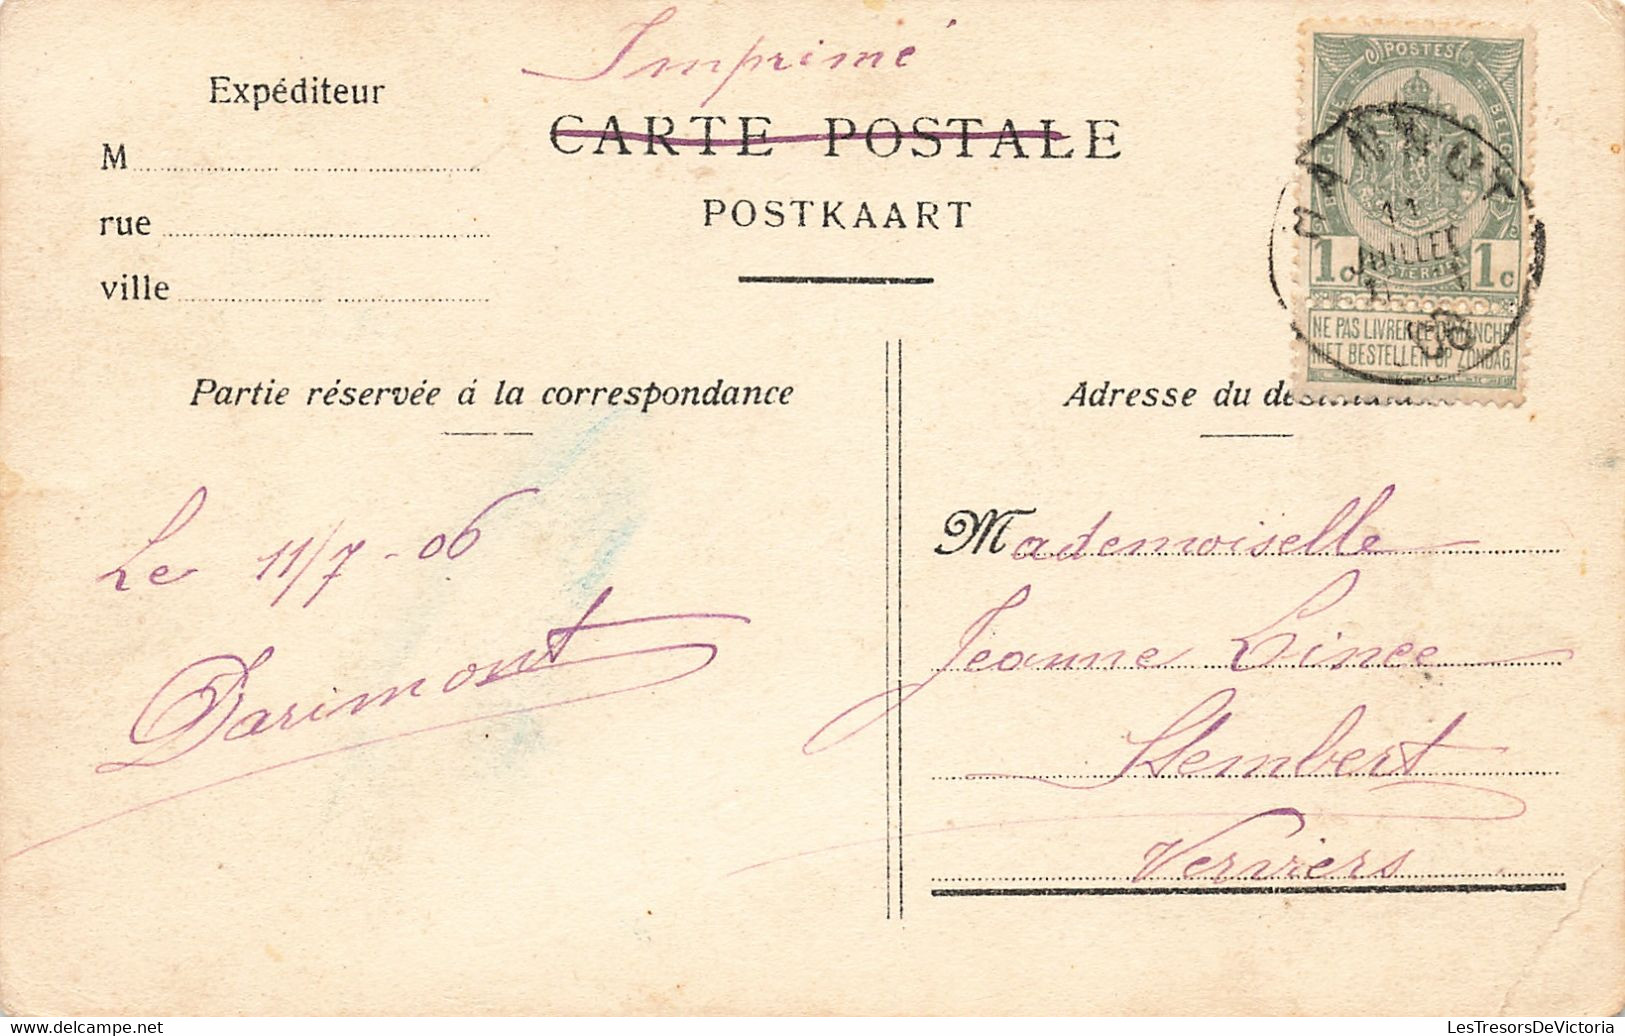 Imprimé
Expéditeur
CARTE POSTALE
M
POSTKAART
rue
ville
POSTES
BELGIQUE BELGIË
HANNUT
11
JUILLET
06
1c 1c
NE PAS LIVRER LE DIMANCHE
NIET BESTELLEN OP ZONDAG
Partie réservée á la correspondance
Adresse du
Le 11/7-06
Darimont
Mademoiselle
Jeanne Lincé
Stembert
Verviers
LesTresorsDeVictoria www.delcampe.net